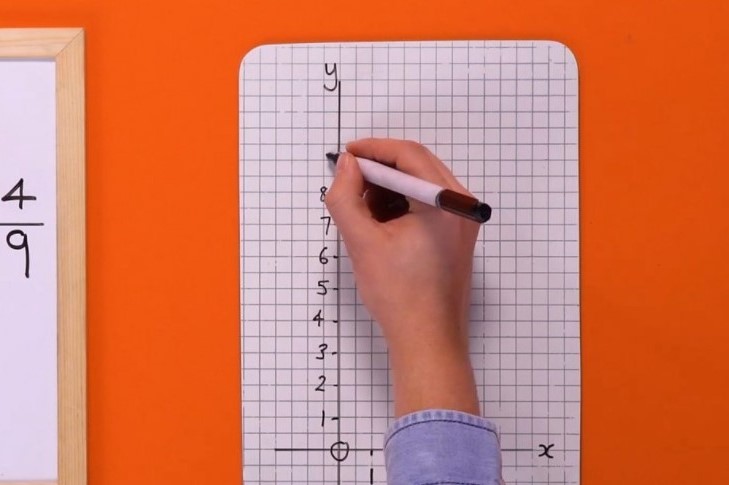 4
9
y
8
7
6
5
4
3
2
1
0 x